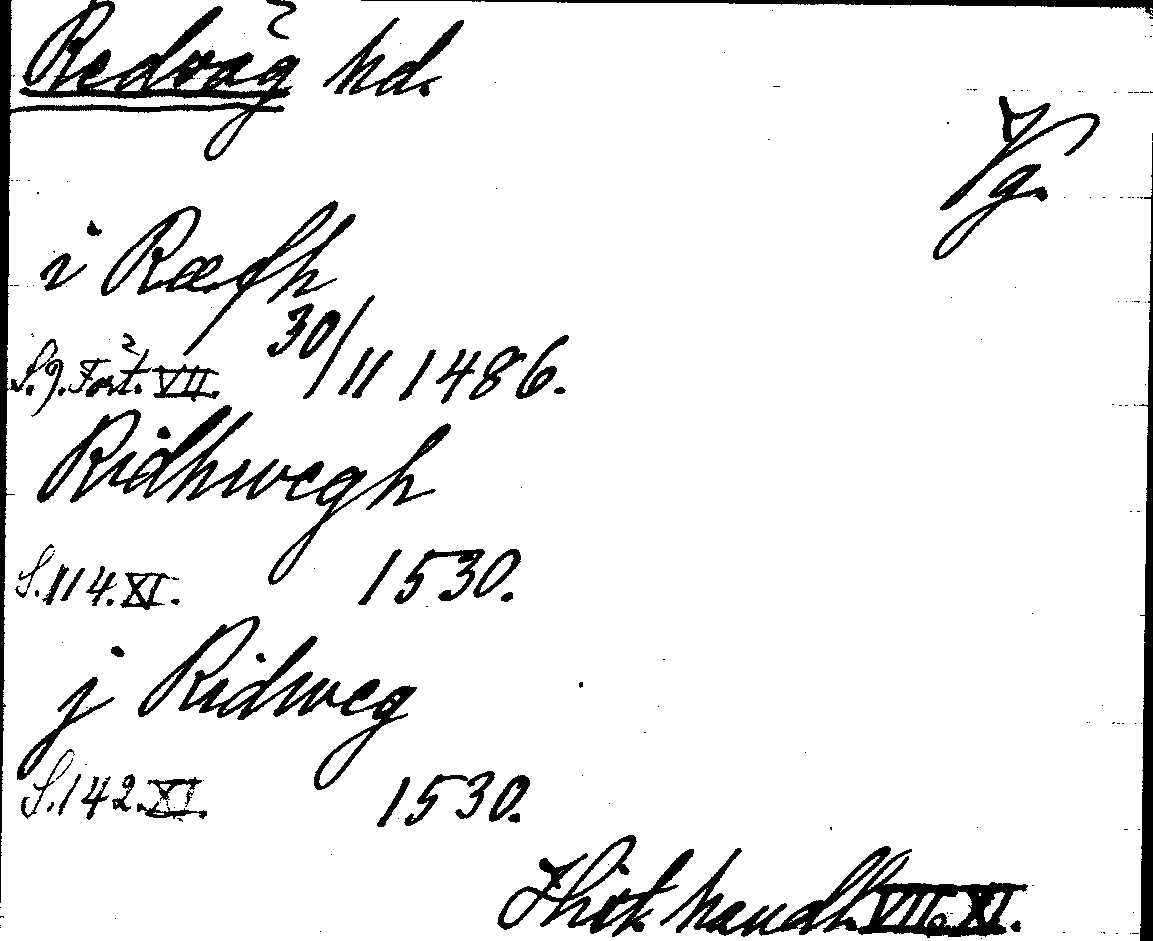 Redväg hd.
Vg.
i Ræfh
S. 9. Fört. VII. 30/11 1486.
Ridhwegh
S. 114. XI. 1530.
j Ridweg
S. 142. XI. 1530.
Hist. handl. VII o. XI.